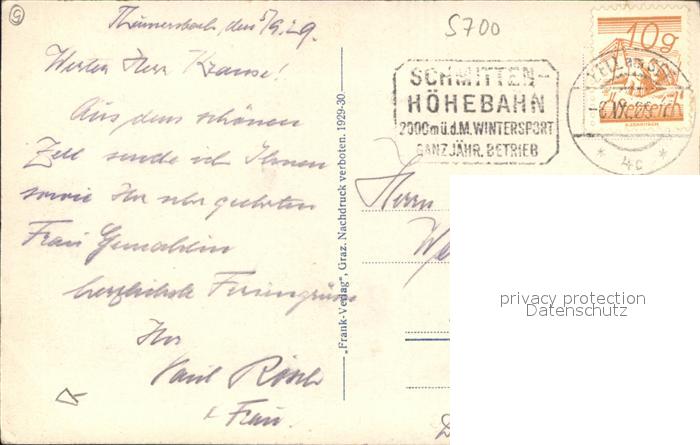 Thumersbach, den 5/9.29.
Werter Herr Krause!
Aus dem schönen
Zell sende ich Ihnen
sowie Ihr sehr geehrten
Frau Gemahlin
herzlichste Feriengrüsse
Ihr
Paul Rösch
Frau.
"Frank-Verlag", Graz. Nachdruck verboten. 1929-30
5700
SCHMITTEN-
HÖHEBAHN
2000m ü.d.M. WINTERSPORT
GANZJÄHR. BETRIEB
10g
ZELL am SEE
4c
Herrn
privacy protection
Datenschutz